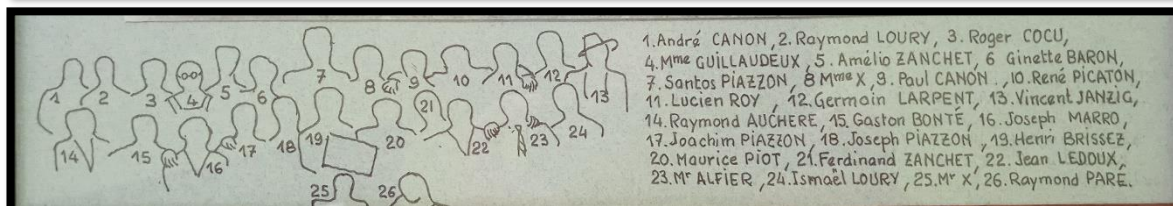 1 2 3 4 5 6 7 8 9 10 11 12 13
14 15 16 17 18 19 20 21 22 23 24
25 26
1.André CANON, 2.Raymond LOURY, 3. Roger COCU,
4.Mme GUILLAUDEUX, 5. Amélio ZANCHET, 6 Ginette BARON,
7.Santos PIAZZON, 8 Mme X, 9. Paul CANON., 10.René PICATON,
11.Lucien ROY, 12.Germain LARPENT, 13.Vincent JANZIG,
14.Raymond AUCHERE, 15.Gaston BONTÉ, 16.Joseph MARRO,
17.Joachim PIAZZON, 18.Joseph PIAZZON, 19.Henri BRISSEZ,
20.Maurice PIOT, 21.Ferdinand ZANCHET, 22.Jean LEDOUX,
23.Mr ALFIER, 24.Ismaël LOURY, 25.Mr X, 26.Raymond PARÉ.